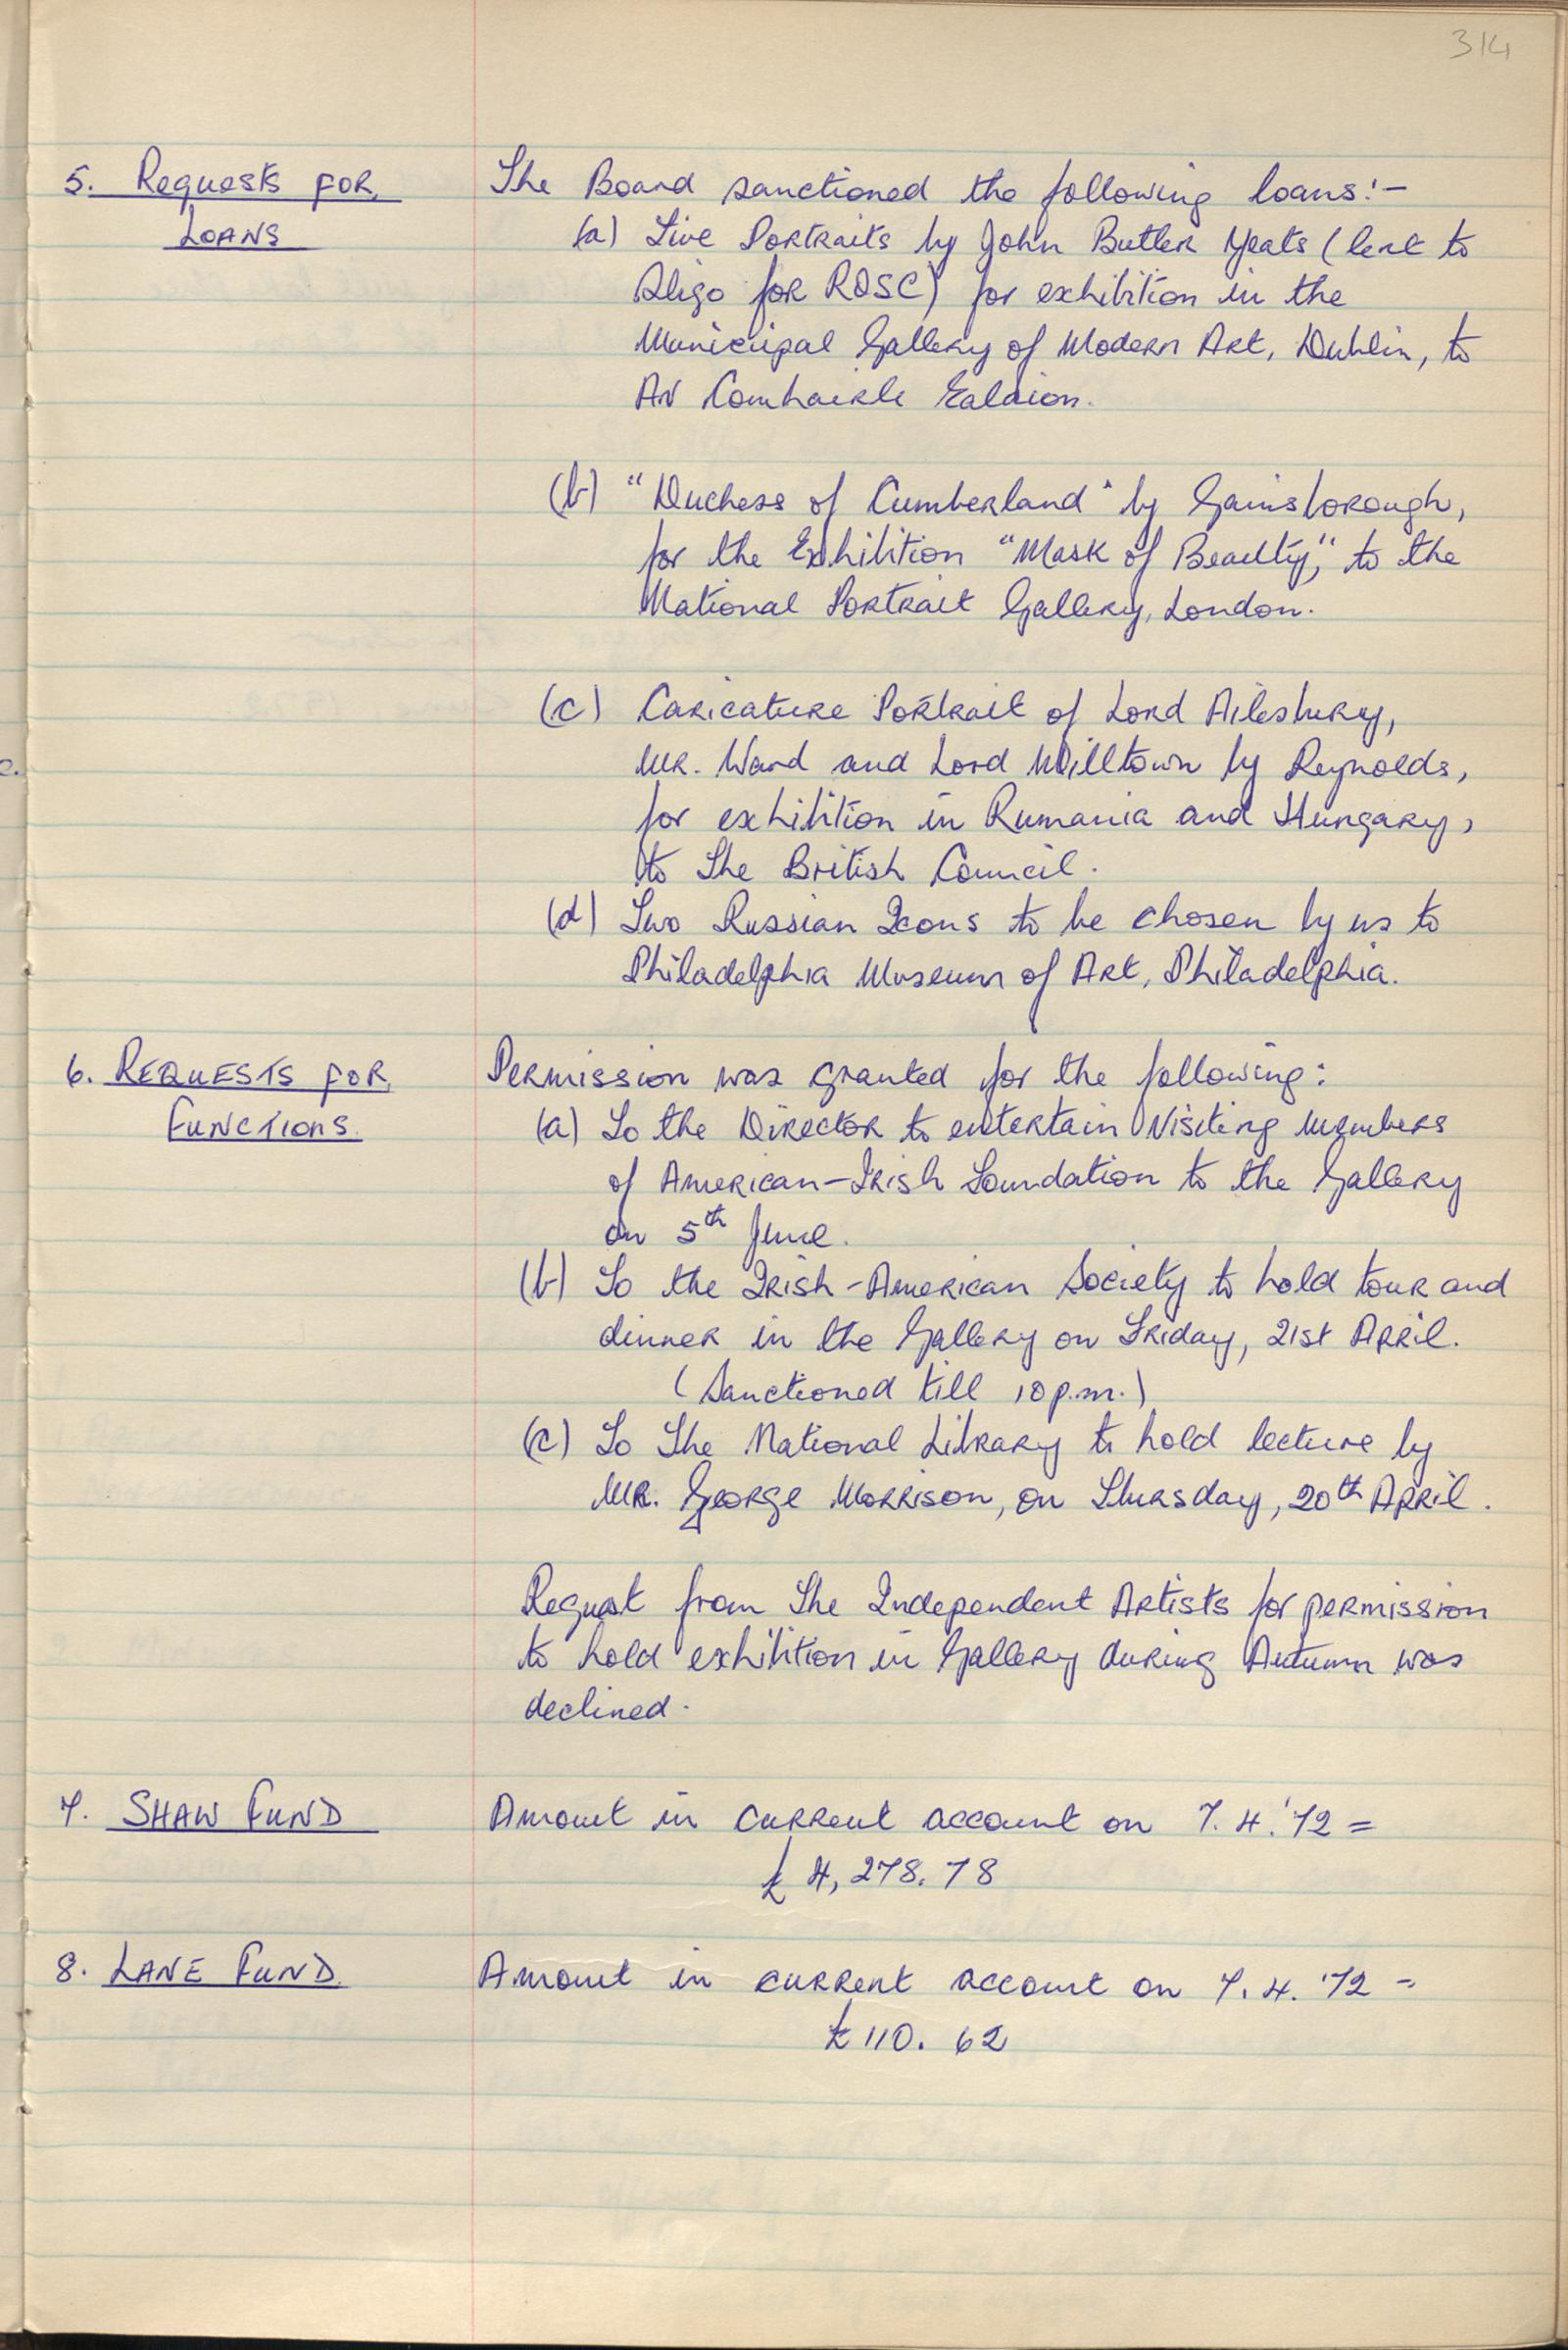 314
5. Requests for
Loans
The Board sanctioned the following loans:-
(a) Five Portraits by John Butler Yeats (lent to
Sligo for ROSC) for exhibition in the
Municipal Gallery of Modern Art, Dublin, to
An Comhairle Ealaion.
(b) "Duchess of Cumberland" by Gainsborough,
for the Exhibition "Mask of Beauty," to the
National Portrait Gallery, London.
(c) Caricature Portrait of Lord Ailesbury,
Mr. Ward and Lord Milltown by Reynolds,
for exhibition in Rumania and Hungary,
to The British Council.
(d) Two Russian Icons to be chosen by us to
Philadelphia Museum of Art, Philadelphia.
6. REQUESTS FOR
FUNCTIONS
Permission was granted for the following:
(a) To the Director to entertain visiting members
of American-Irish Foundation to the Gallery
on 5th June.
(b) To the Irish-American Society to hold tour and
dinner in the Gallery on Friday, 21st April.
(Sanctioned till 10 p.m.)
(c) To The National Library to hold lecture by
Mr. George Morrison, on Thursday, 20th April.
Request from The Independent Artists for permission
to hold exhibition in Gallery during Autumn was
declined.
7. SHAW FUND
Amount in current account on 7.4.'72 =
£4,278.78
8. LANE FUND
Amount in current account on 7.4.'72 -
£110.62